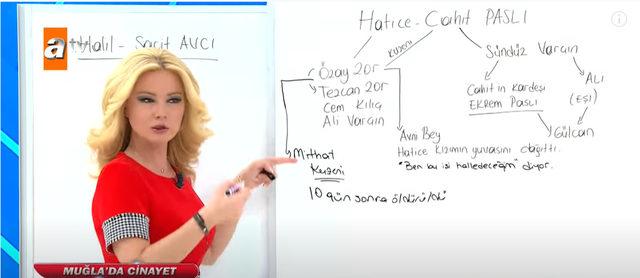 atv Halil - Sacit AVCI
Hatice - Cahit PASLI
Kuzeni
Özay Zor
Tezcan Zor
Cem Kılıç
Ali Vargın
Sündüz Vargın
Cahit'in Kardeşi
EKREM PASLI
ALİ
(EŞİ)
Gülcan
Avni Bey
Hatice kızımın yuvasını dağıttı.
"Ben bu işi halledeceğim" diyor.
Mithat
Kuzeni
10 gün sonra öldürüldü
MUĞLA'DA CİNAYET